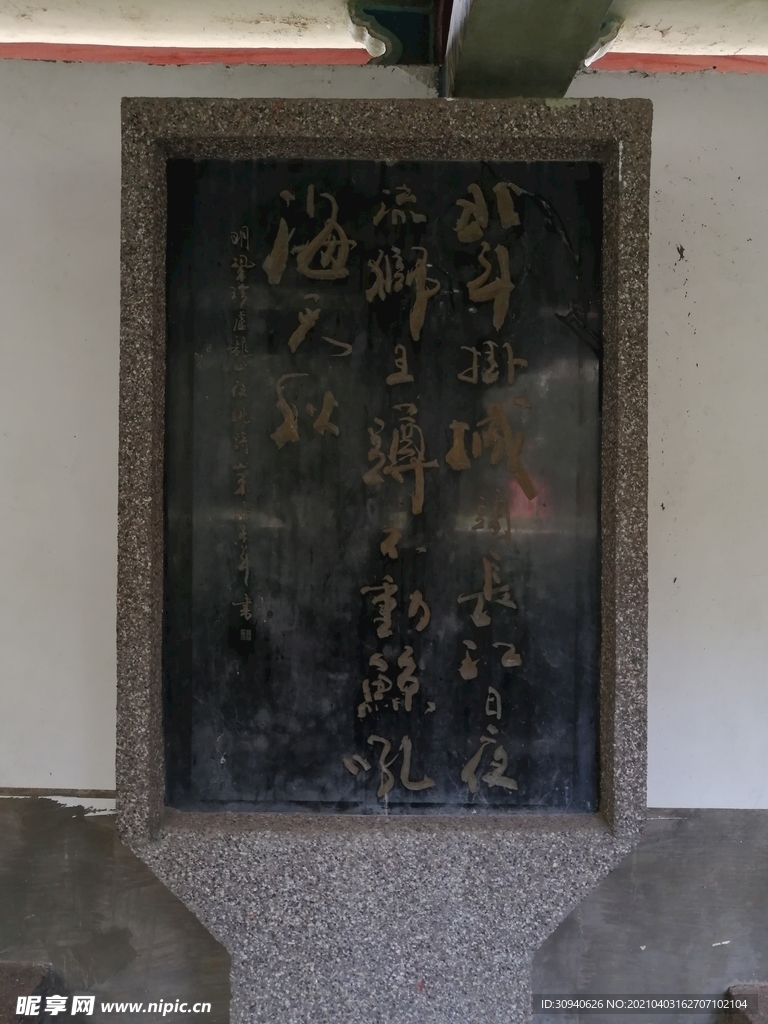 北斗掛城頭長江日夜
流獅且蹲不動鯨吼
海天秋
明
書
昵享网 www.nipic.cn
ID:30940626 NO:20210403162707102104